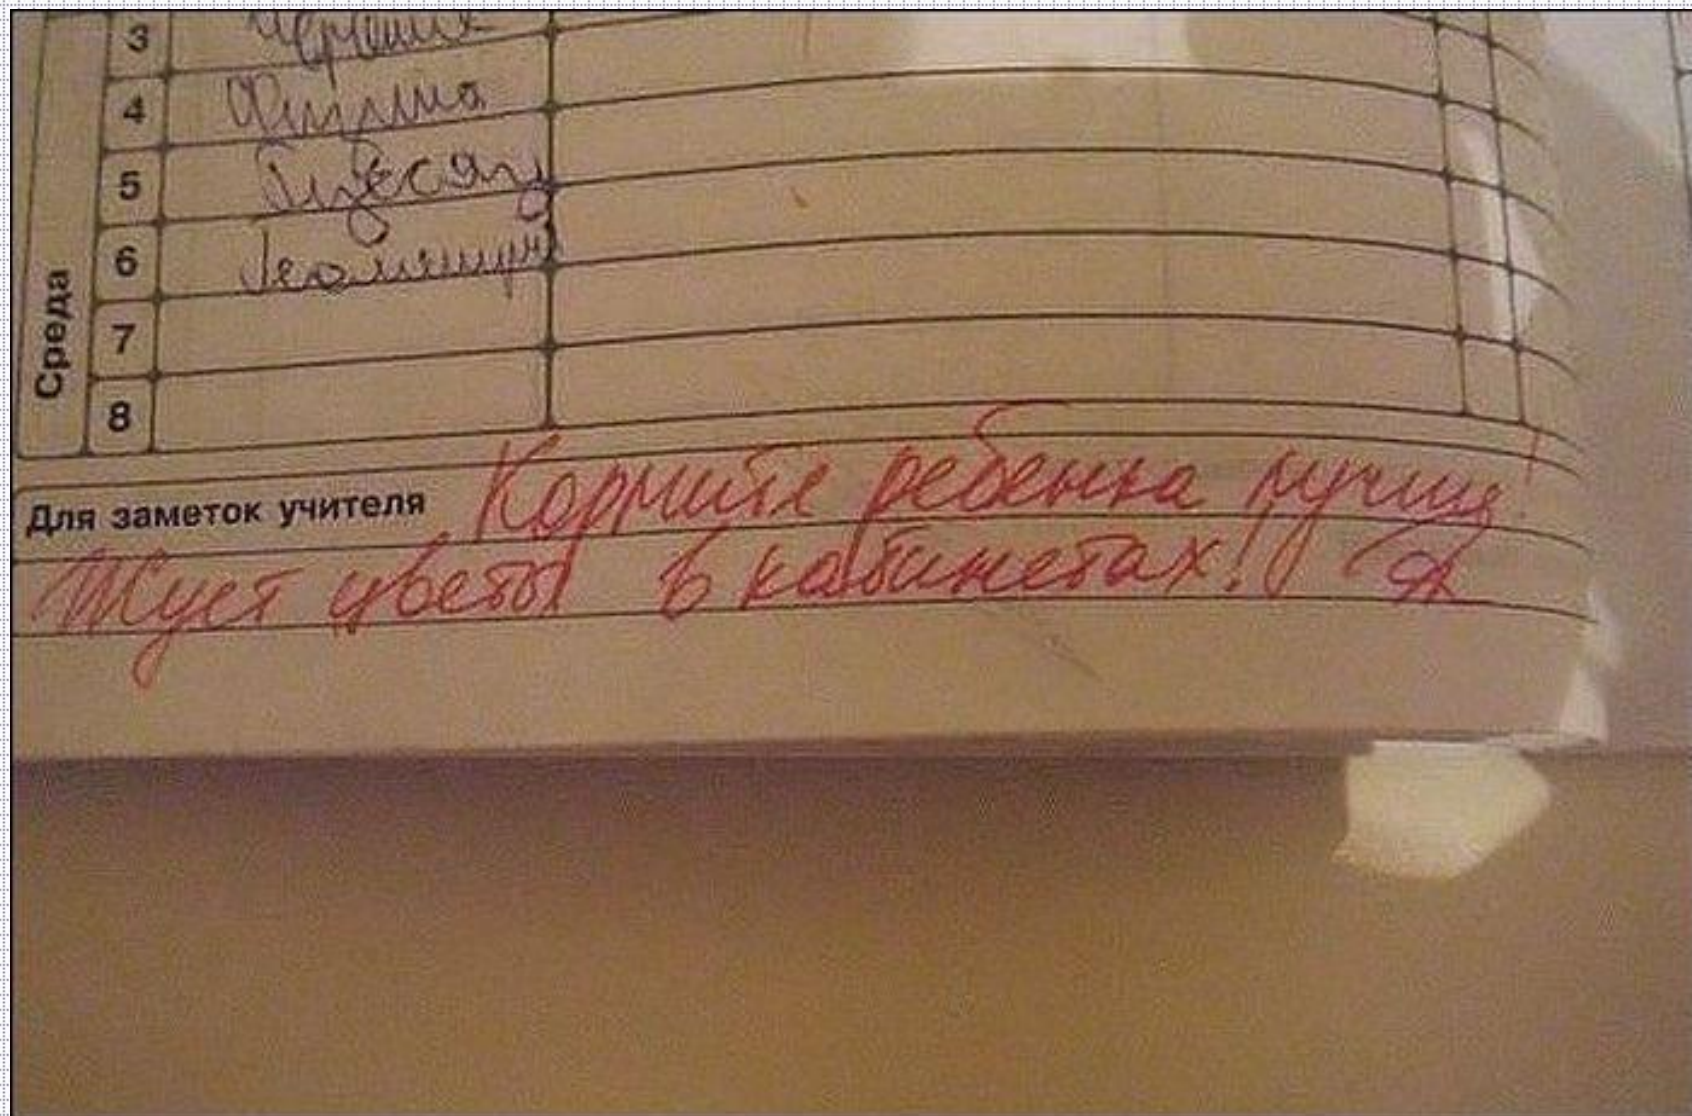 Среда
3 Черчение
4 Физика
5 Рус яз
6 Геометрия
7
8
Для заметок учителя Кормите ребенка лучше!
Жует цветы в кабинетах!